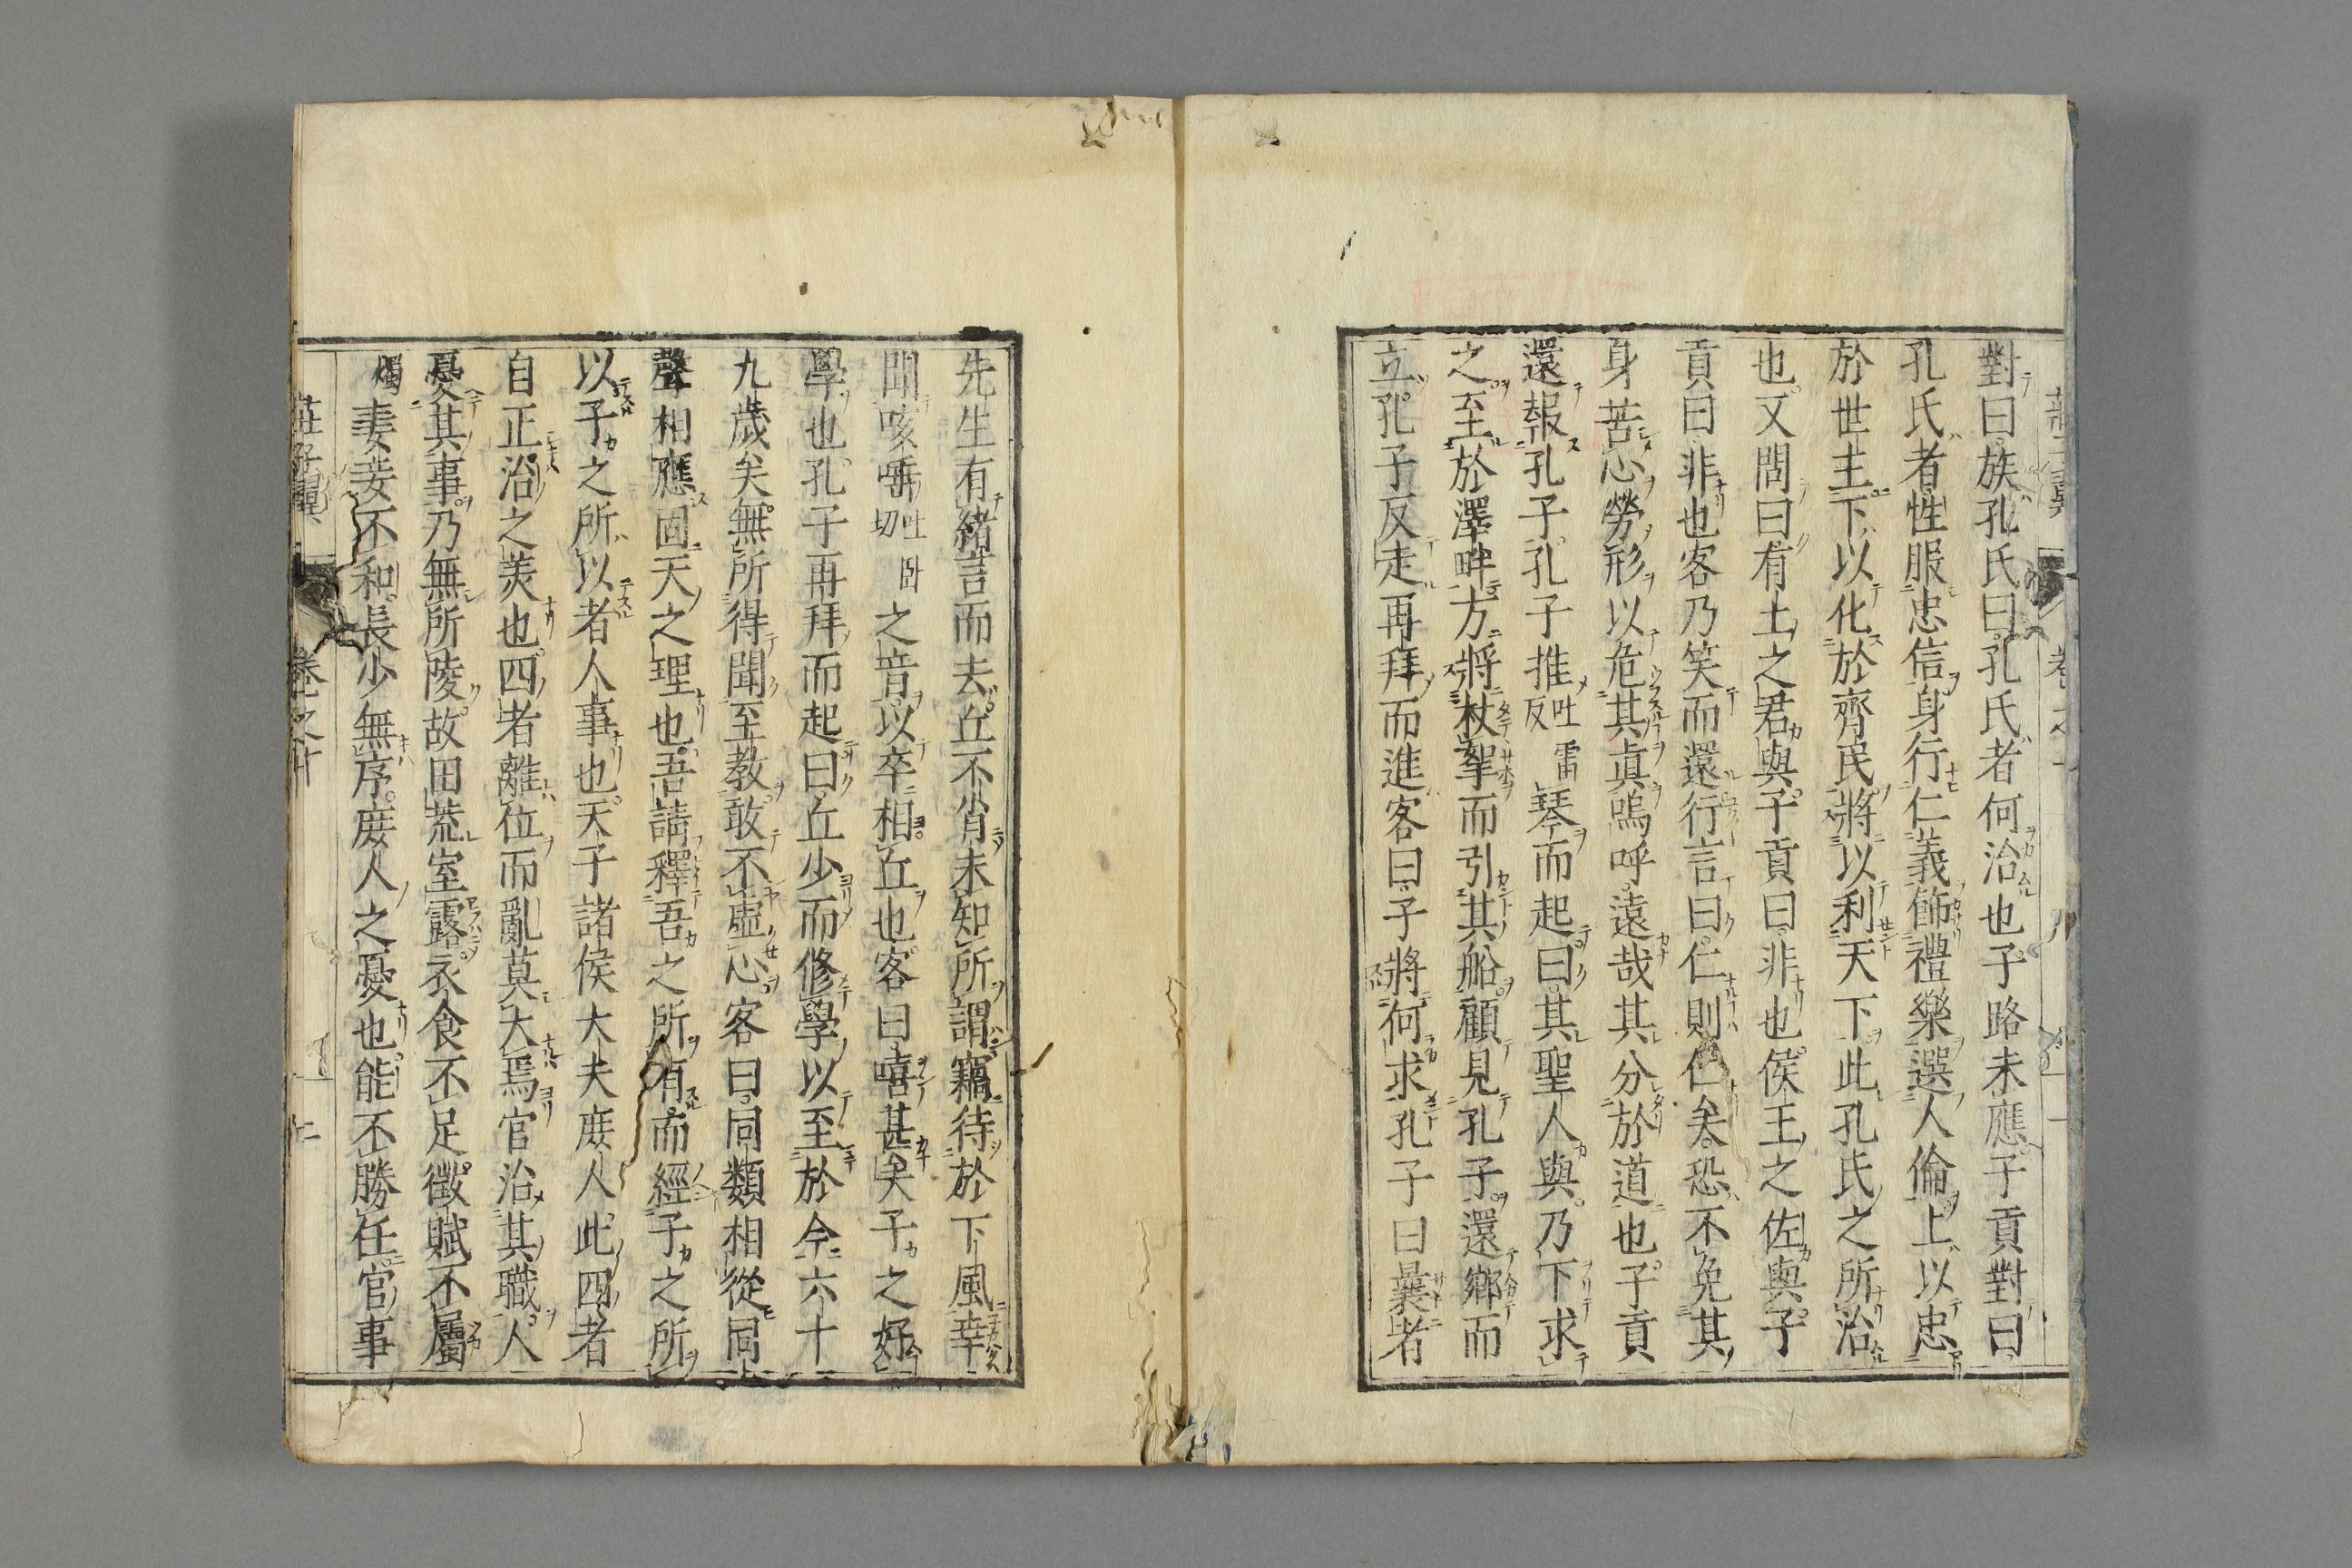 對曰族孔氏曰孔氏者何治也子路未應子貢對曰
孔氏者性服忠信身行仁義飾禮樂選人倫上以忠
於世主下以化於齊民將以利天下此孔氏之所治
也又問曰有土之君與子貢曰非也侯王之佐與子
貢曰非也客乃笑而還行言曰仁則仁矣恐不免其
身苦心勞形以危其真嗚呼遠哉其分於道也子貢
還報孔子孔子推吐雷反琴而起曰其聖人與乃下求
之至於澤畔方將杖拏而引其船顧見孔子還鄉而
立孔子反走再拜而進客曰子將何求孔子曰曩者
先生有緒言而去丘不肖未知所謂竊待於下風幸
聞咳唾吐臥切之音以卒相丘也客曰嘻甚矣子之好
學也孔子再拜而起曰丘少而修學以至於今六十
九歲矣無所得聞至教敢不虛心客曰同類相從同
聲相應固天之理也吾請釋吾之所有而經子之所
以子之所以者人事也天子諸侯大夫庶人此四者
自正治之美也四者離位而亂莫大焉官治其職人
憂其事乃無所陵故田荒室露衣食不足徵賦不屬
燭妻妾不和長少無序庶人之憂也能不勝任官事
莊子翼 卷之十